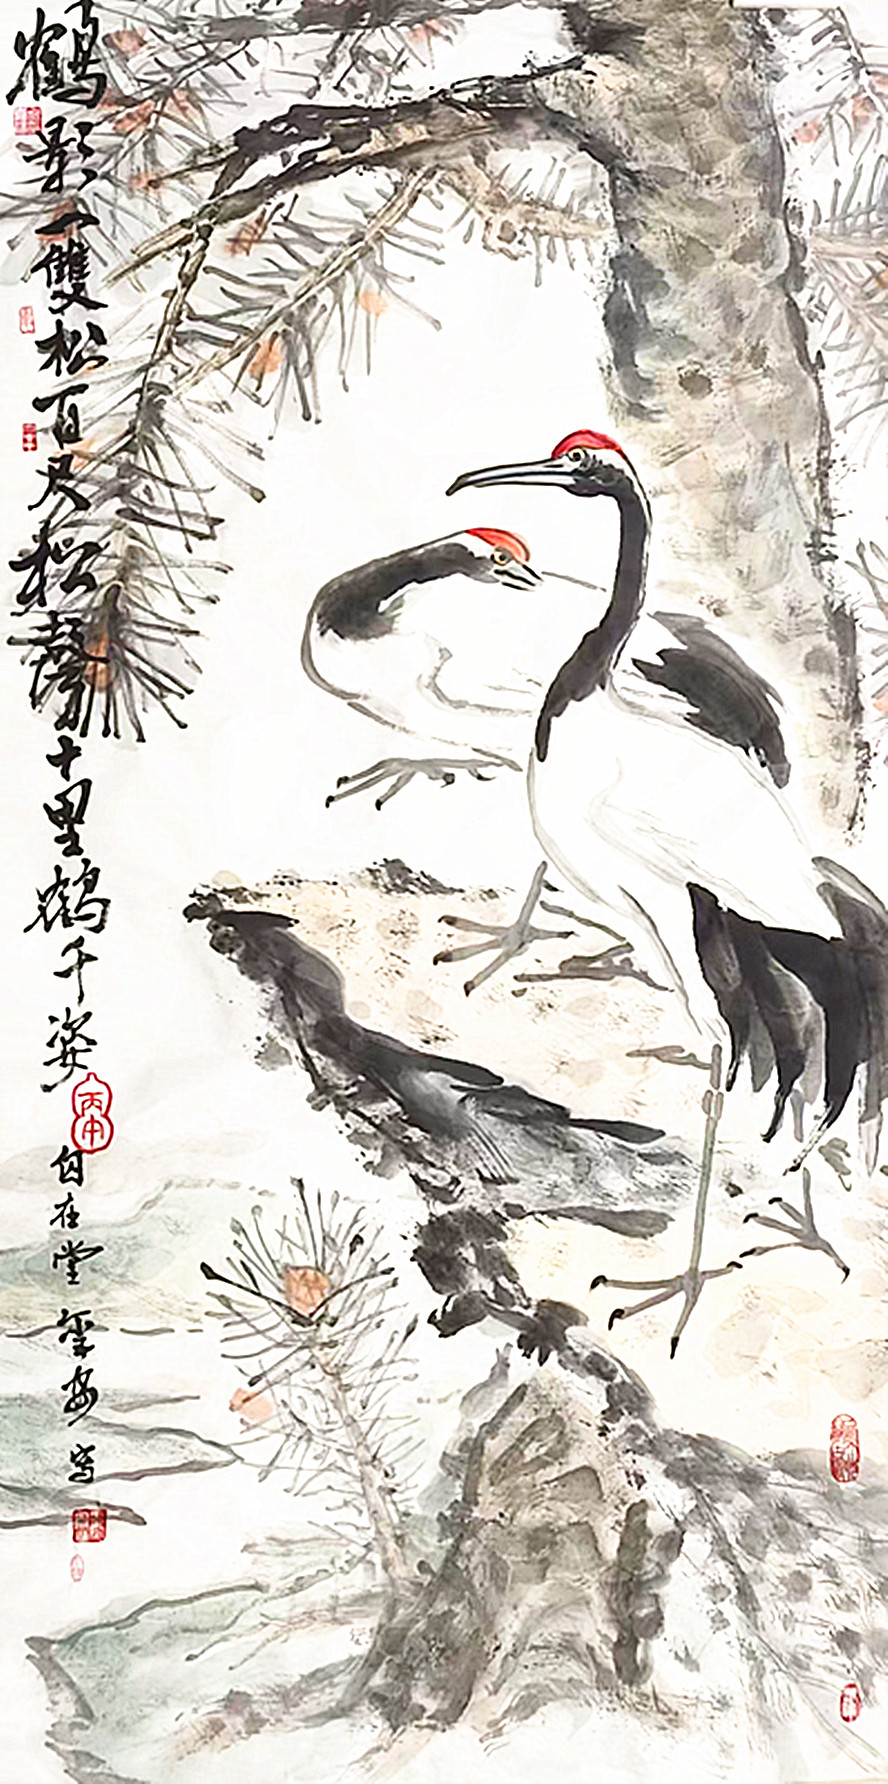 鶴影一雙松百尺松聲十里鶴千姿
丙申
自在堂
寫